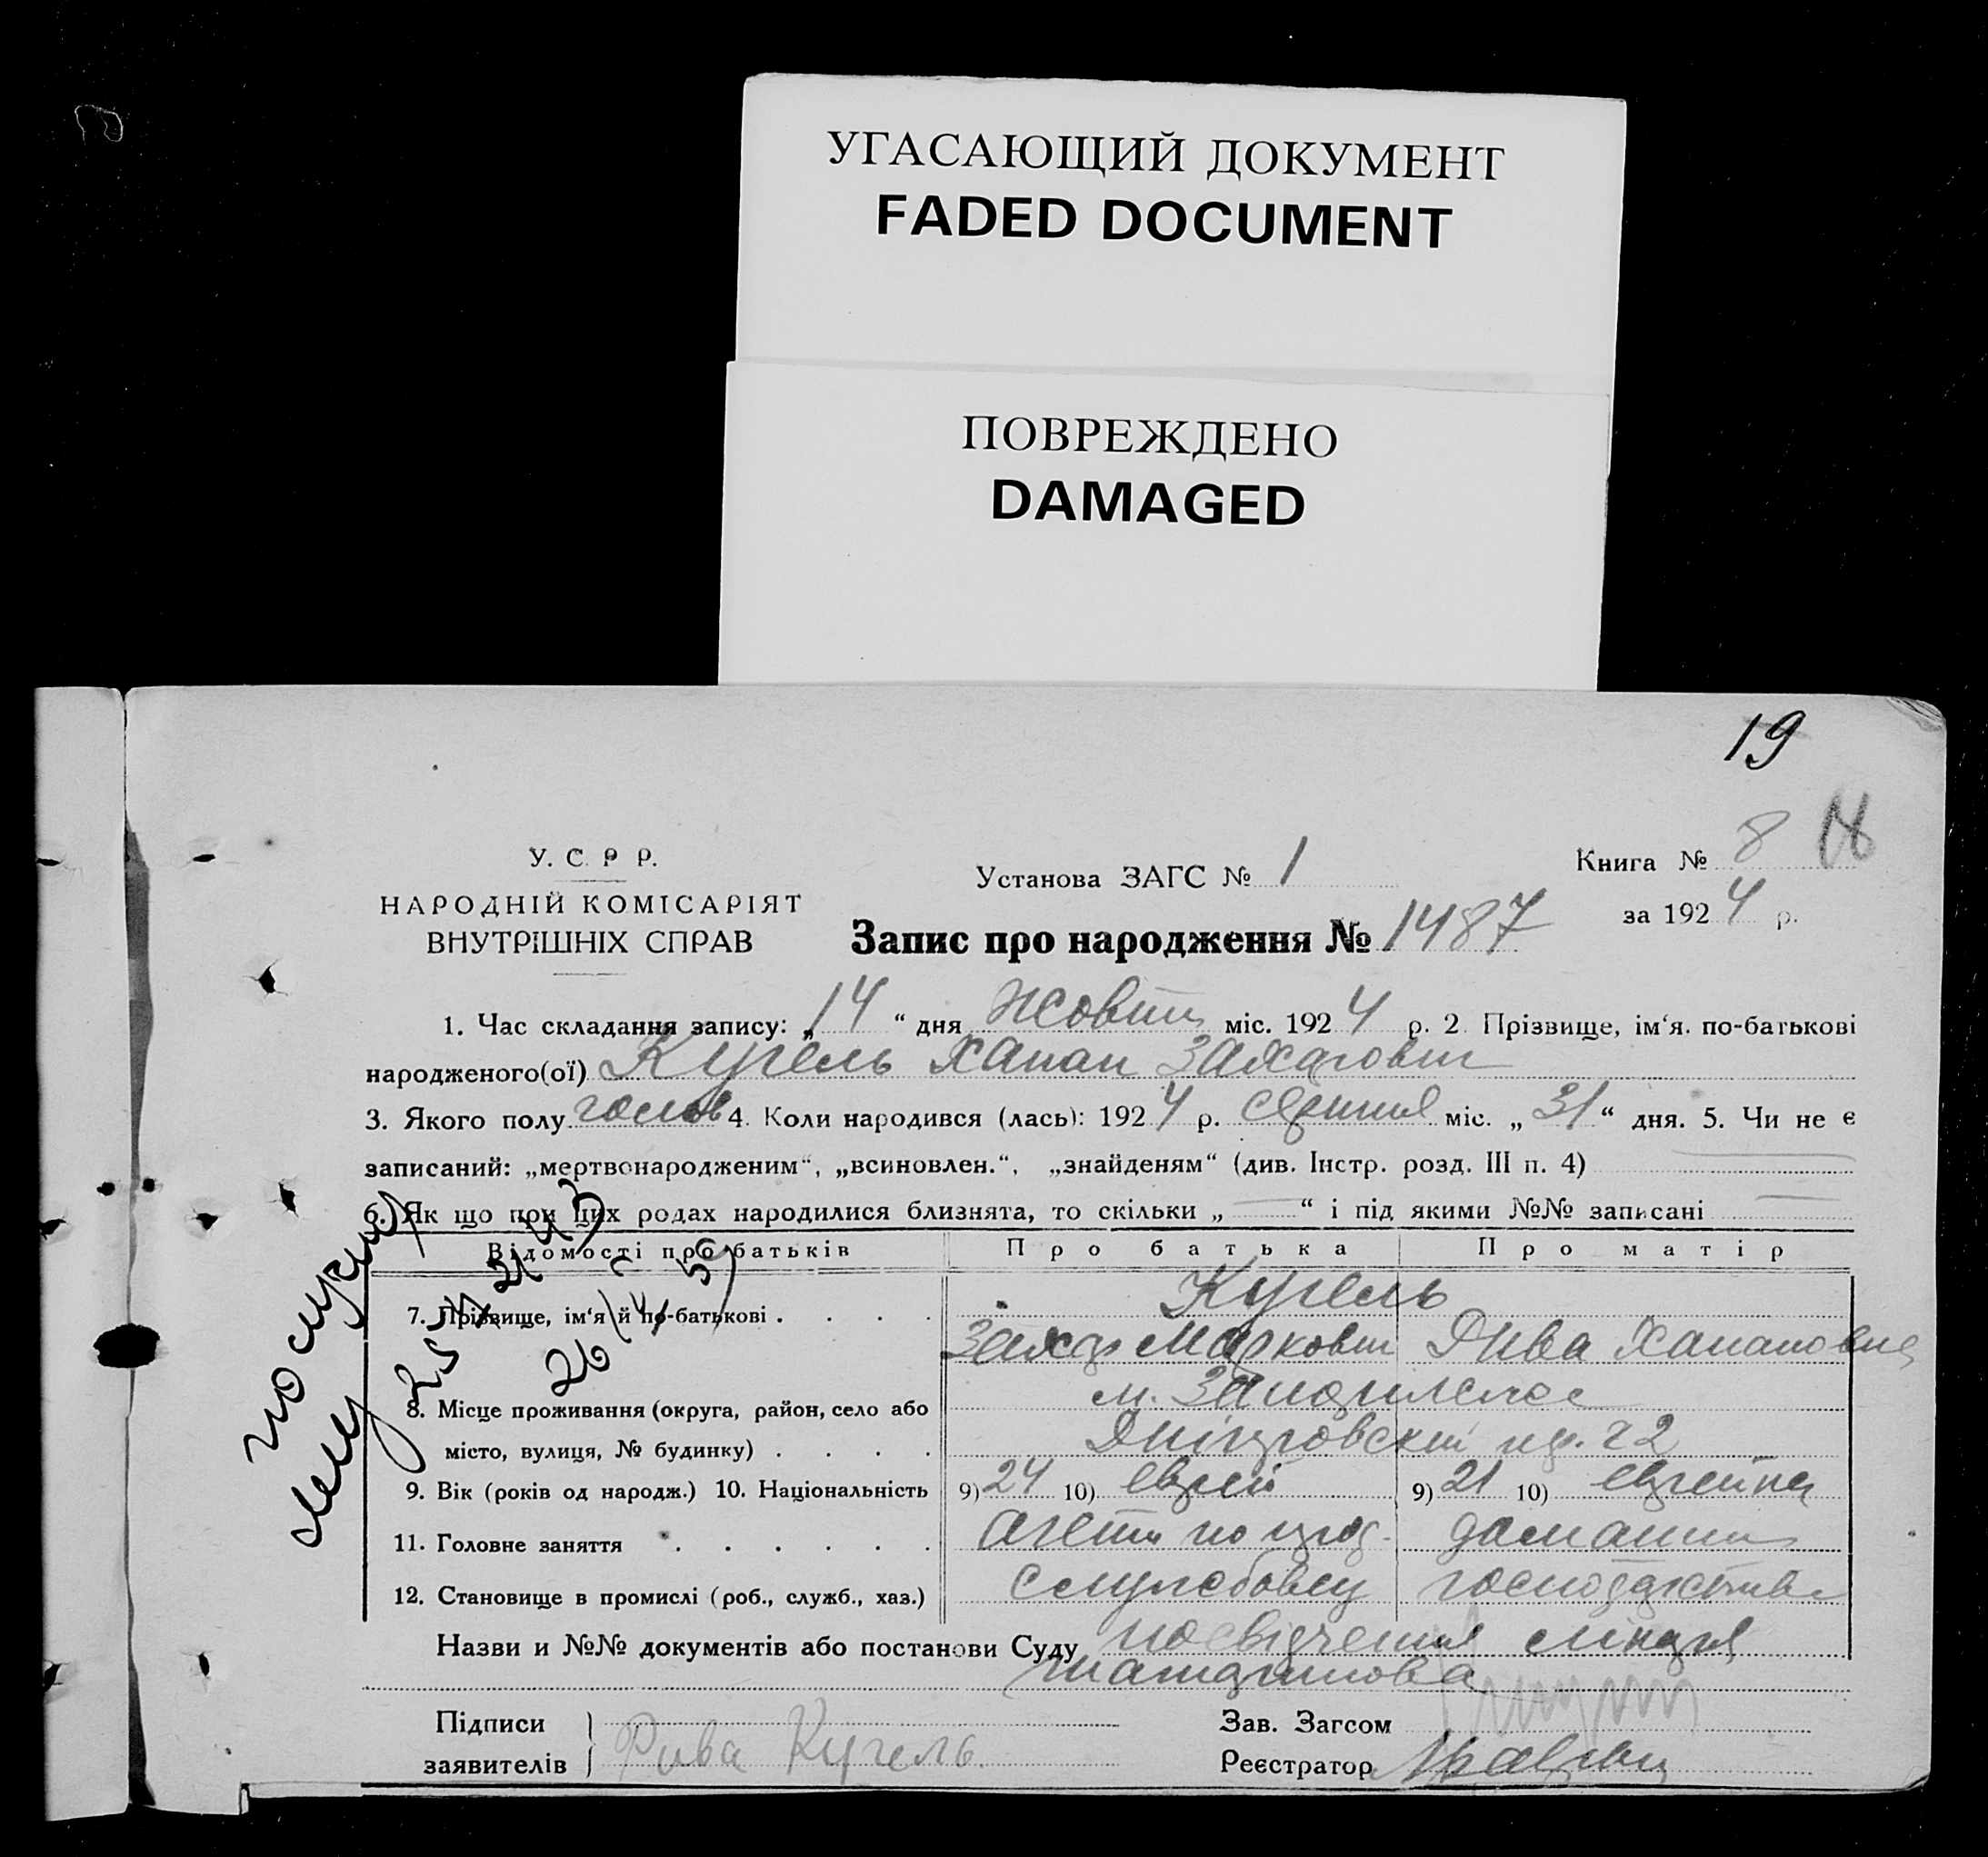 УГАСАЮЩИЙ ДОКУМЕНТ
FADED DOCUMENT
ПОВРЕЖДЕНО
DAMAGED
19
У. С. Р Р.
НАРОДНІЙ КОМІСАРІЯТ
ВНУТРІШНІХ СПРАВ
Установа ЗАГС № 1
Книга № 8
за 1924 р.
Запис про народження № 1487
1. Час складання запису: „14“ дня Жовтн міс. 1924 р. 2. Прізвище, ім‘я. по-батькові
народженого(ої) Кугель Ханан Захарович
3. Якого полу 4. Коли народився (лась): 1924 р. серпня міс. „31“ дня. 5. Чи не є
записаний: „мертвонародженим“, „всиновлен.“, „знайденям“ (див. Інстр. розд. III п. 4)
6. Як що при цих родах народилися близнята, то скільки „ “ і під якими №№ записані
Відомості про батьків Про батька Про матір
7. Прізвище, ім‘я й по-батькові . . . . Кугель
Захар Маркович Рива Ханановна
8. Місце проживання (округа, район, село або м. Запоріжжє
місто, вулиця, № будинку) . . . . 
9. Вік (років од народж.) 10. Національність 9) 24 10) еврей 9) 21 10) еврейка
11. Головне заняття . . . . . . Агент по домашнє
12. Становище в промислі (роб., служб., хаз.) службовец господарство
Назви и №№ документів або постанови Суду посвідчення лікаря
Підписи
заявителів Рива Кугель
Зав. Загсом
Реєстратор